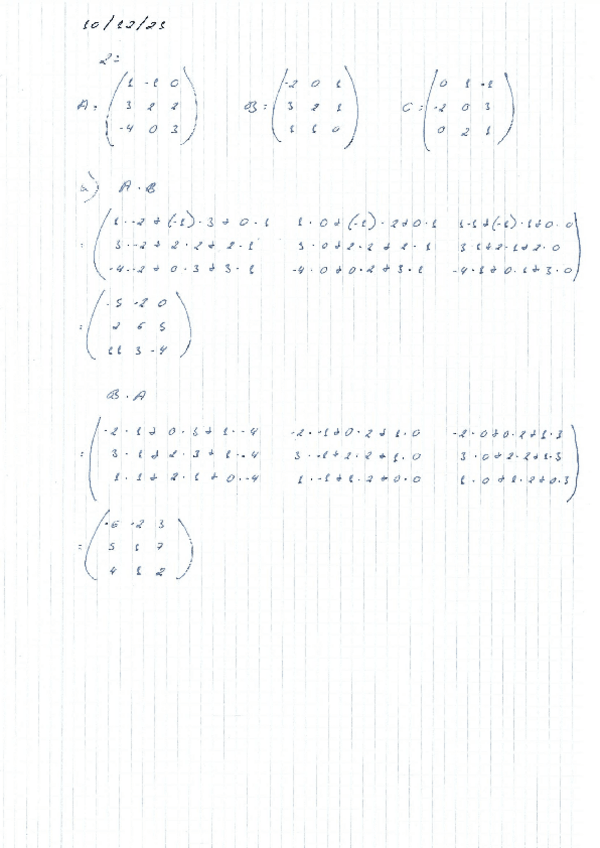 10/12/21
2=
A = ( 1 -1 0 B = ( -2 0 1 C = ( 0 1 -1
3 2 2 3 2 1 -2 0 3
-4 0 3 ) 1 1 0 ) 0 2 1 )
a) A · B
= ( 1 · -2 + (-1) · 3 + 0 · 1 1 · 0 + (-1) · 2 + 0 · 1 1 · 1 + (-1) · 1 + 0 · 0
3 · -2 + 2 · 2 + 2 · 1 3 · 0 + 2 · 2 + 2 · 1 3 · 1 + 2 · 1 + 2 · 0
-4 · -2 + 0 · 3 + 3 · 1 -4 · 0 + 0 · 2 + 3 · 1 -4 · 1 + 0 · 1 + 3 · 0 )
= ( -5 -2 0
2 6 5
11 3 -4 )
B · A
= ( -2 · 1 + 0 · 3 + 1 · -4 -2 · -1 + 0 · 2 + 1 · 0 -2 · 0 + 0 · 2 + 1 · 3
3 · 1 + 2 · 3 + 1 · -4 3 · -1 + 2 · 2 + 1 · 0 3 · 0 + 2 · 2 + 1 · 3
1 · 1 + 2 · 1 + 0 · -4 1 · -1 + 1 · 2 + 0 · 0 1 · 0 + 1 · 2 + 0 · 3 )
= ( -6 -2 3
5 1 7
4 1 2 )